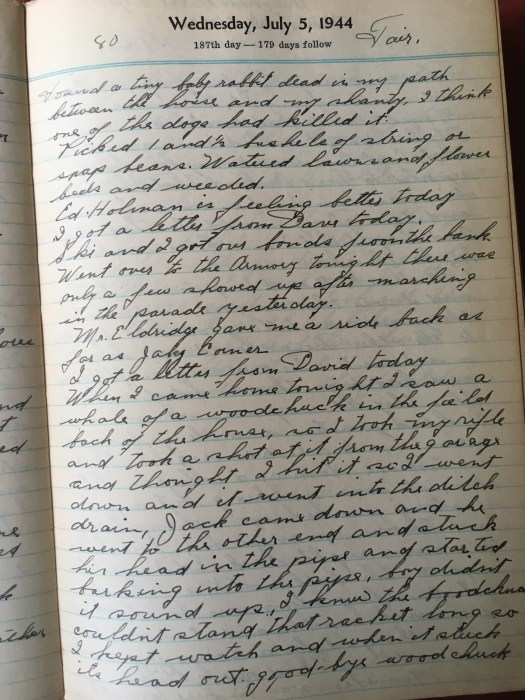 Wednesday, July 5, 1944
80
187th day — 179 days follow
Fair.
Found a tiny baby rabbit dead in my path
between the house and my shanty, I think
one of the dogs had killed it.
Picked 1 and ½ bushels of string or
snap beans. Watered lawns and flower
beds and weeded.
Ed. Holman is feeling better today
I got a letter from Dave today.
Ski and I got our bonds from the bank
Went over to the Armory tonight there was
only a few showed up after marching
in the parade yesterday.
Mr. Eldridge gave me a ride back as
far as Corner
I got a letter from David today
When I came home tonight I saw a
whale of a woodchuck in the feild
back of the house, so I took my rifle
and took a shot at it from the garage
and thought I hit it so I went
down and it went into the ditch
drain, Jack came down and he
went to the other end and stuck
his head in the pipe and started
barking into the pipe, boy didn't
it sound up, I knew the woodchu
couldnt stand that racket long so
I kept watch and when it stuck
its head out. good-bye woodchuck